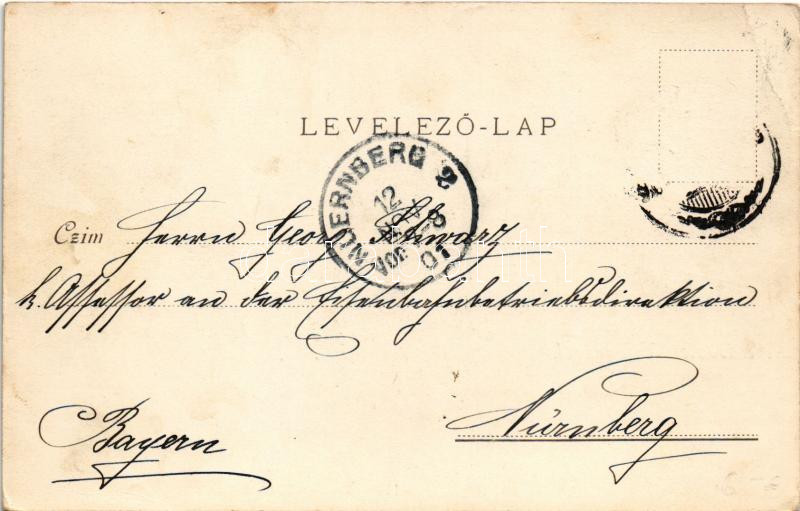 LEVELEZŐ-LAP
NUERNBERG 2
12
Vor. 7-8
01
Czim Herrn Georg Schwarz
k. Assessor an der Eisenbahnbetriebsdirektion
Nürnberg
Bayern